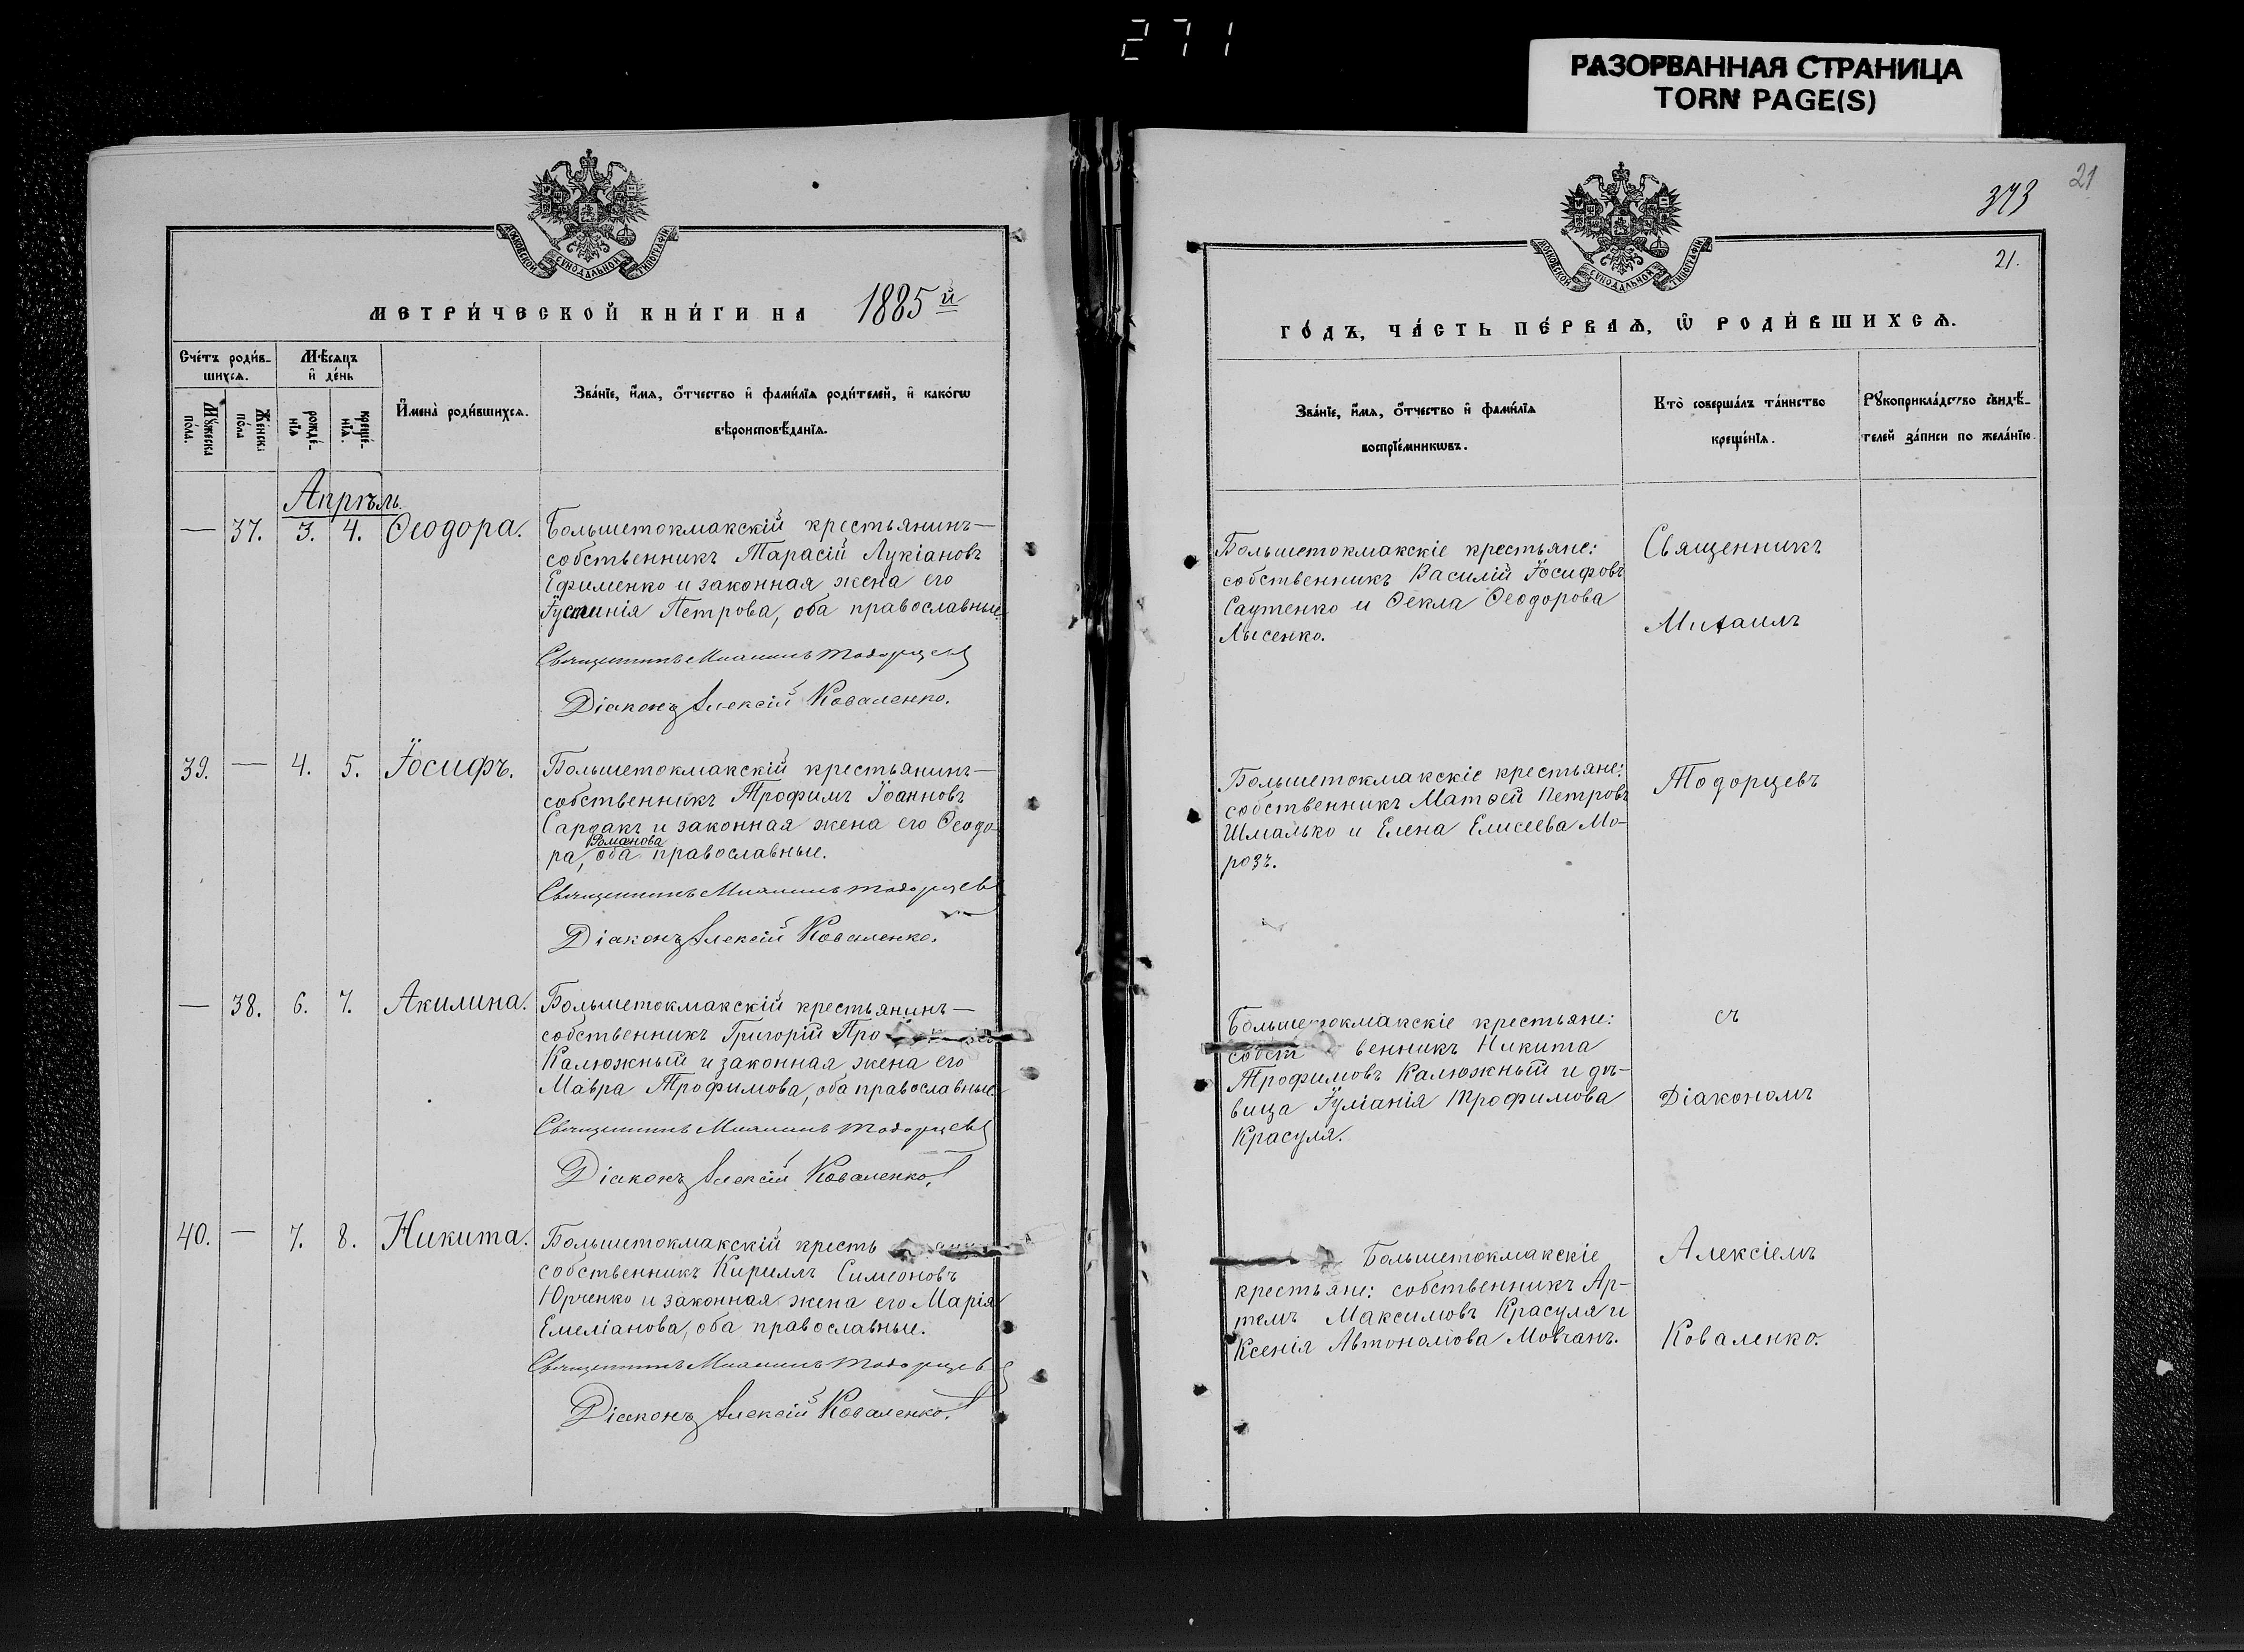 271
РАЗОРВАННАЯ СТРАНИЦА
TORN PAGE(S)
МОСКОВСКОЙ СѴНОДАЛЬНОЙ ТИПОГРАФІИ
МЕТРИ́ЧЕСКОЙ КНИ́ГИ НА 1885й
Сче́тъ роди́в-
шихсѧ.
Мѣсѧцъ
и҆ де́нь
Мꙋ́жеска
по́ла.
Же́нска
по́ла
рожде́-
нїѧ
креще́-
нїѧ.
И҆мена̀ роди́вшихсѧ.
Зва́нїе, и҆́мѧ, ѻ҆́тчество и҆ фами́лїѧ роди́телей, и҆ како́гѡ
вѣроисповѣ́данїѧ.
Апрѣль.
— 37. 3. 4. Ѳеодора.
Большетокмакскій крестьянинъ—
собственникъ Тарасій Лукіановъ
Ефименко и законная жена его
Іустинія Петрова, оба православные.
Священникъ Михаилъ Тодорцевъ
Діаконъ Алексій Коваленко.
39. — 4. 5. Іосифъ.
Большетокмакскій крестьянинъ—
собственникъ Трофимъ Іоанновъ
Сардакъ и законная жена его Ѳеодо-
Романова
ра, оба православные.
Священникъ Михаилъ Тодорцевъ
Діаконъ Алексій Коваленко.
— 38. 6. 7. Акилина.
Большетокмакскій крестьянинъ—
собственникъ Григорій Про
Калюжный и законная жена его
Мавра Трофимова, оба православные.
Священникъ Михаилъ Тодорцевъ
Діаконъ Алексій Коваленко.
40. — 7. 8. Никита.
Большетокмакскій кресть
собственникъ Кириллъ Симеоновъ
Юрченко и законная жена его Марія
Емеліанова, оба православные.
Священникъ Михаилъ Тодорцевъ
Діаконъ Алексій Коваленко.
21
373
21.
МОСКОВСКОЙ СѴНОДАЛЬНОЙ ТИПОГРАФІИ
ГО́ДЪ, ЧА́СТЬ ПЕ́РВАѦ, Ѽ РОДИ́ВШИХСѦ.
Зва́нїе, и҆́мѧ, ѻ҆́тчество и҆ фами́лїѧ
воспрїе́мникѡвъ.
Кто̀ соверша́лъ та́инство
креще́нїѧ.
Рꙋкоприкла́дство свидѣ́-
телей за́писи по жела́нїю.
Большетокмакскіе крестьяне:
собственникъ Василій Іосифовъ
Саутенко и Ѳекла Ѳеодорова
Лысенко.
Священникъ
Михаилъ
Большетокмакскіе крестьяне:
собственникъ Матѳей Петровъ
Шмалько и Елена Елисеева Мо-
розъ.
Тодорцевъ
Большетокмакскіе крестьяне:
собственникъ Никита
Трофимовъ Калюжный и дѣ-
вица Іуліанія Трофимова
Красуля.
съ
Діакономъ
Большетокмакскіе
крестьяне: собственникъ Ар-
темъ Максимовъ Красуля и
Ксенія Автономова Мовчанъ.
Алексіемъ
Коваленко.